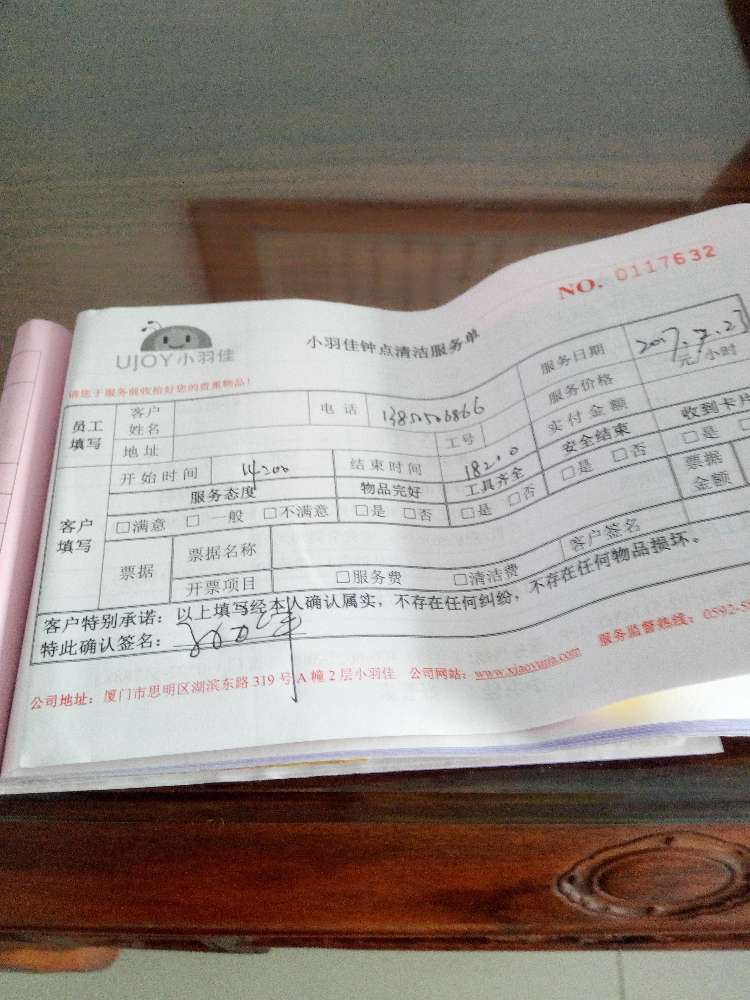 NO. 0117632
UJOY小羽佳
小羽佳钟点清洁服务单
请您于服务前收拾好您的贵重物品!
员工填写 客户姓名 电话 服务日期 2017.7.27
地址 工号 服务价格 元/小时
开始时间 14:00 结束时间 18:00 实付金额
服务态度 物品完好 工具齐全 安全结束 收到卡片
客户填写 □满意 □一般 □不满意 □是 □否 □是 □否 □是 □否 □是
票据 票据名称 票据金额
开票项目 □服务费 □清洁费 客户签名
客户特别承诺:以上填写经本人确认属实,不存在任何纠纷,不存在任何物品损坏。
特此确认签名:
公司地址:厦门市思明区湖滨东路319号A幢2层小羽佳 公司网站:www.xiaoyujia.com 服务监督热线:0592-5